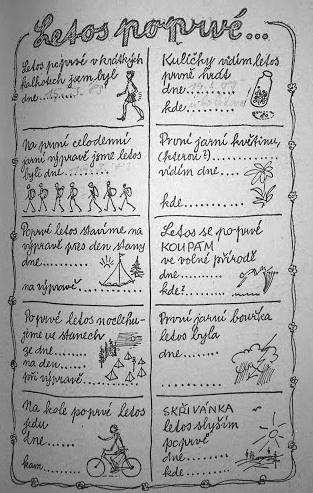 Letos poprvé...
Letos poprvé v krátkých
kalhotech jsem byl
dne
Kuličky vidím letos
prvně hrát
dne
kde
Na první celodenní
jarní výpravě jsme letos
byli dne
První jarní květinu,
(kterou?)..........
vidím dne....
kde........
Poprvé letos stavíme na
výpravě přes den stany
dne..........
na výpravě....
Letos se poprvé
KOUPÁM
ve volné přírodě
dne..........
kde?........
Poprvé letos nocleh-
jeme ve stanech
ze dne......
na den.....
při výpravě......
První jarní bouřka
letos byla
dne....
........
Na kole poprvé letos
jedu
dne......
kam.......
SKŘIVÁNKA
letos slyším
poprvé
dne......
kde......